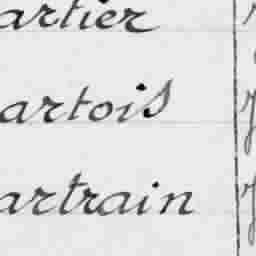 artier
artois
artrain